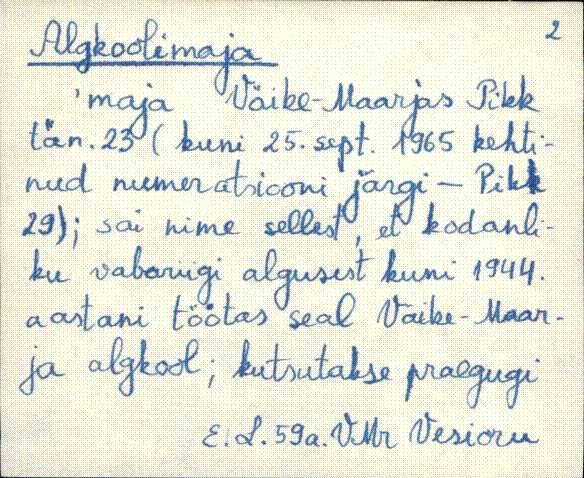 2
Algkoolimaja
'maja Väike-Maarjas Pikk
tän. 23 (kuni 25. sept. 1965 kehti-
nud numeratsiooni järgi – Pikk
29); sai nime sellest, et kodanli-
ku vabariigi algusest kuni 1944.
aastani töötas seal Väike-Maar-
ja algkool; kutsutakse praegugi
E. L. 59a. VMr Vesioru